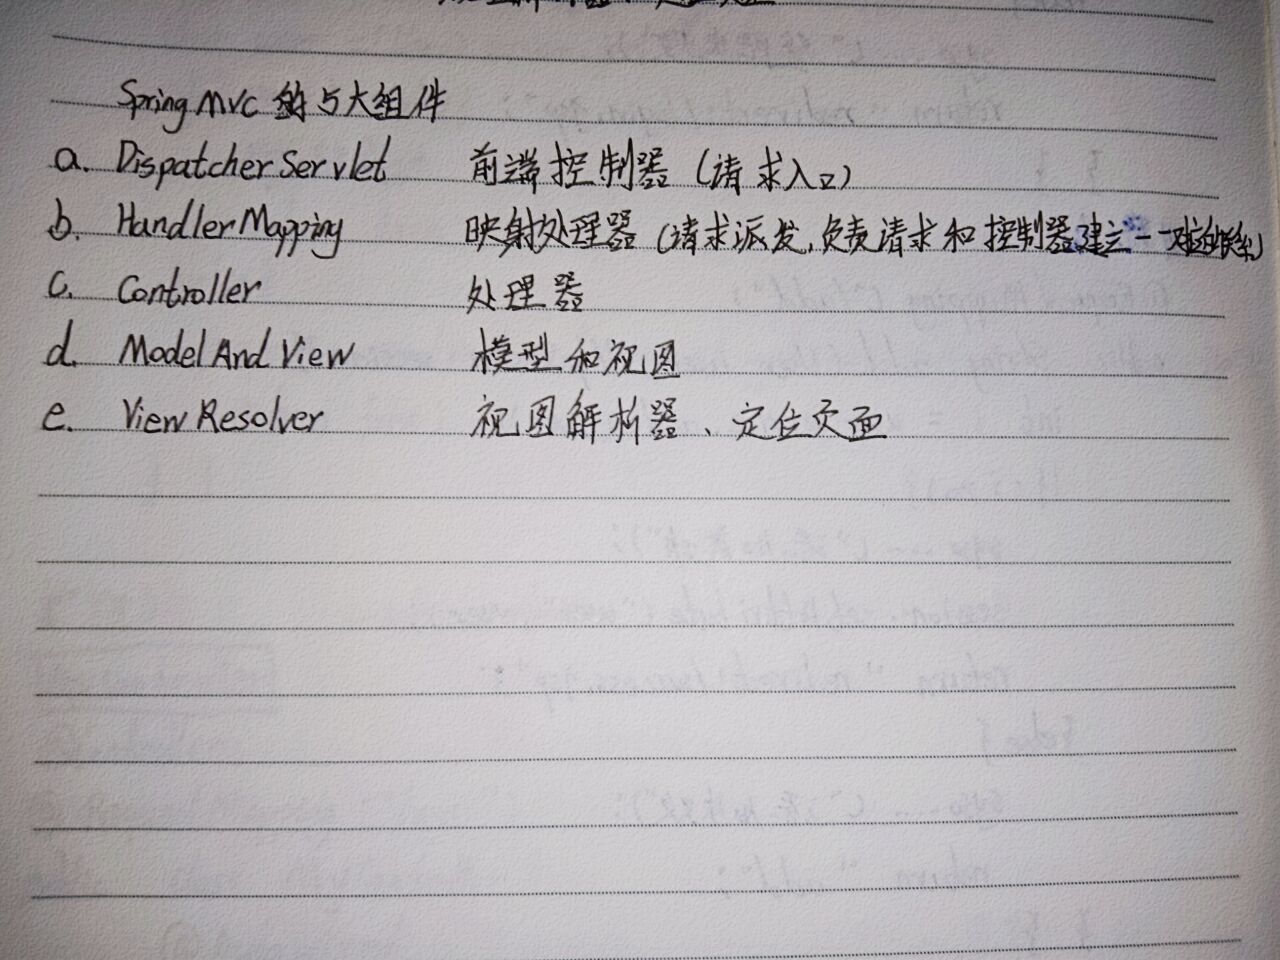 Spring MVC 的5大组件
a. DispatcherServlet 前端控制器（请求入口）
b. HandlerMapping 映射处理器（请求派发，负责请求和控制器建立一一对应的联系）
c. Controller 处理器
d. ModelAndView 模型和视图
e. ViewResolver 视图解析器、定位页面